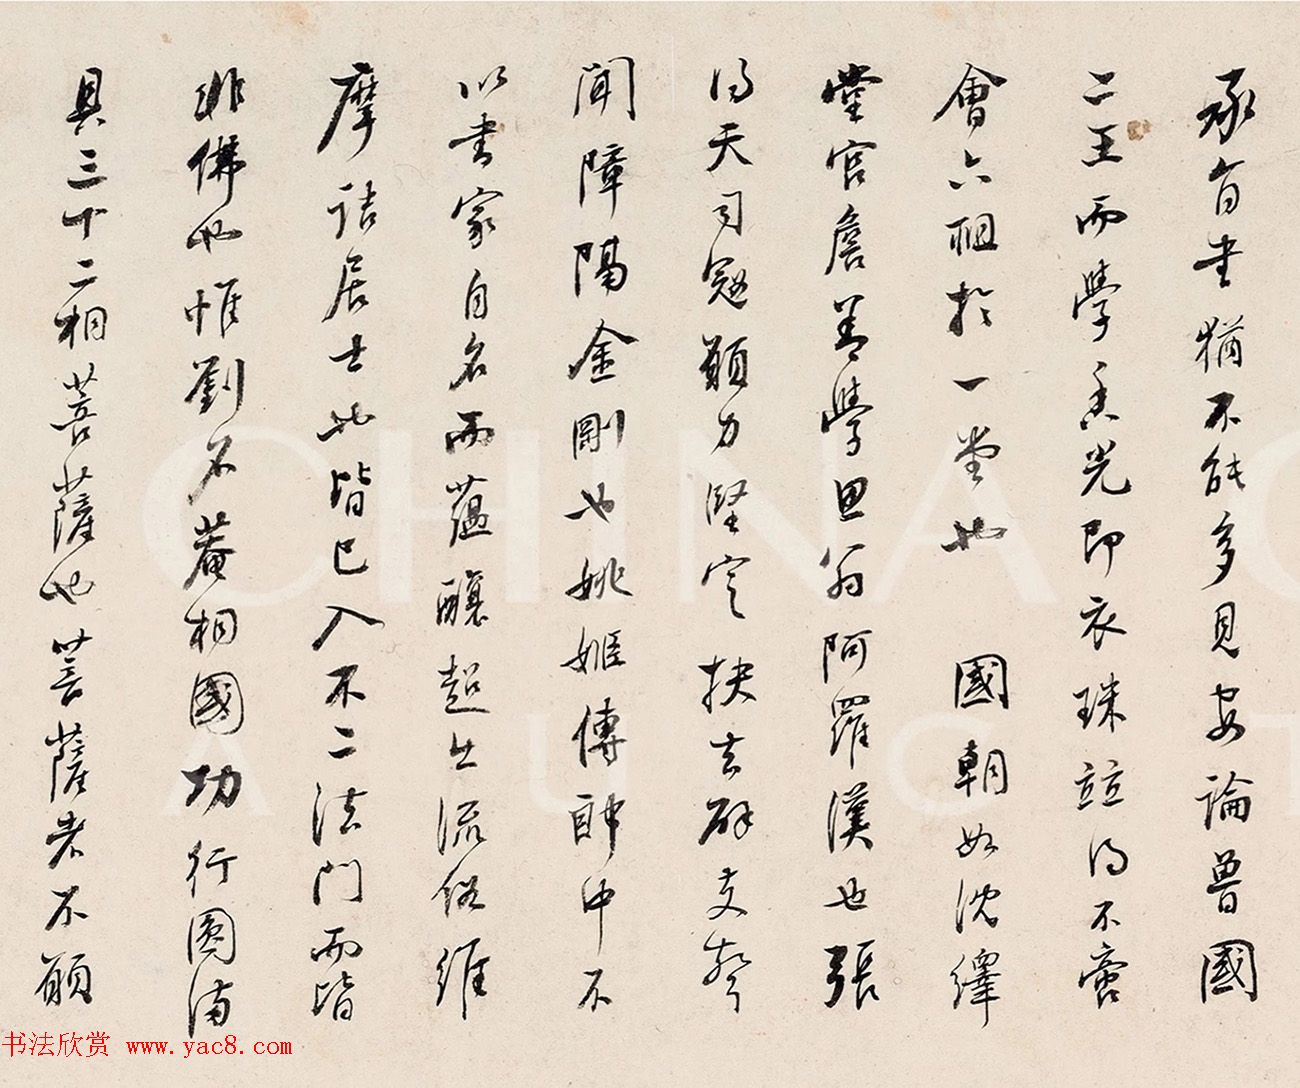 承旨書猶不能多見安論魯國
二王而學香光即衣珠立得不啻
會六祖於一堂也 國朝如沈繹
堂官詹善學思翁阿羅漢也張
得天司寇願力堅定抉去辟支聲
聞障隔金剛也姚姬傳郎中不
以書家自名而蘊釀超出流俗維
摩詰居士也皆已入不二法門而皆
非佛也惟劉石菴相國功行圓滿
具三十二相菩薩也菩薩者不願
CHINA G
AUCT
书法欣赏 www.yac8.com